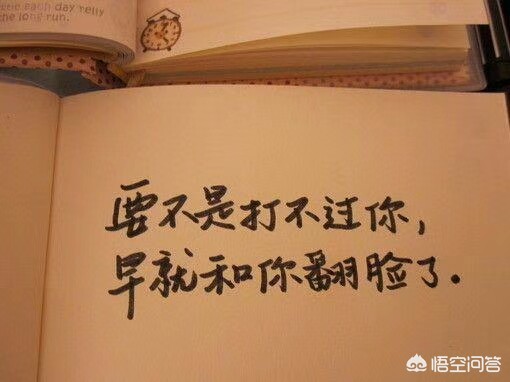 each day relly
the long run.
要不是打不过你，
早就和你翻脸了.
悟空问答